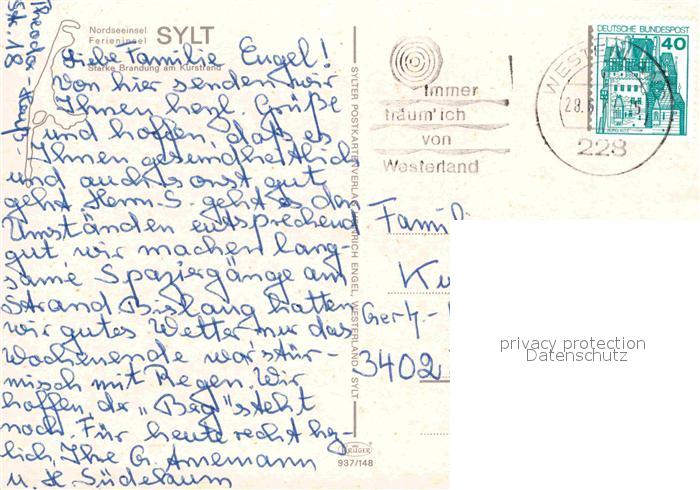 Theodor-Heuß-
Str. 18
Nordseeinsel
Ferieninsel SYLT
Starke Brandung am Kurstrand
Liebe Familie Engel!
Von hier senden wir
Ihnen herzl. Grüße
und hoffen, daß es
Ihnen gesundheitlich
und auch sonst gut
geht. Herrn S. geht es den
Umständen entsprechend
gut, wir machen lang-
same Spaziergänge am
Strand. Bislang hatten
wir gutes Wetter nur das
Wochenende war stür-
misch mit Regen. Wir
hoffen, der „Berg" steht
noch. Für heute recht hz-
lich, Ihre G. Amemann
u. H. Südekum
SYLTER POSTKARTENVERLAG HEINRICH ENGEL, WESTERLAND / SYLT
KRÜGER
937/148
Immer
träum' ich
von
Westerland
WESTER
28.
228
DEUTSCHE BUNDESPOST
40
Famil
Ku
Gertr.-
3402
privacy protection
Datenschutz